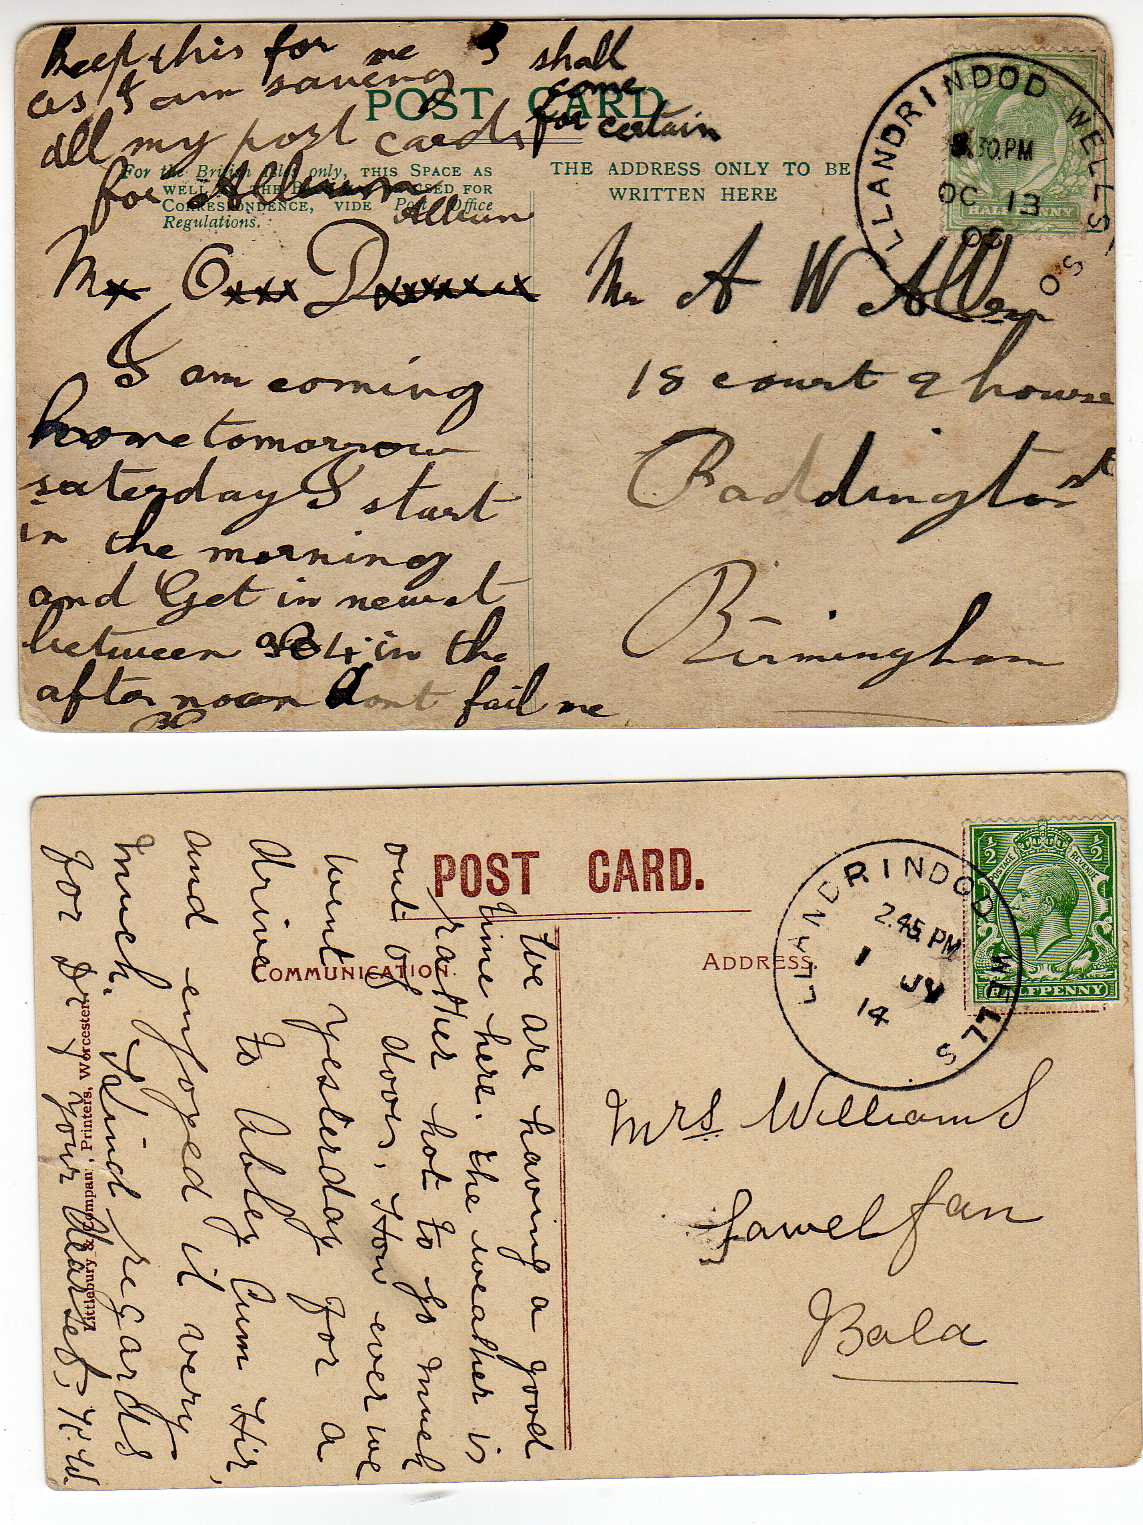 Keep this for me I shall
as I am saving come
all my post cards for certain
for Album
Allbum
POST CARD
For the British Isles only, THIS SPACE AS
WELL AS THE BACK MAY BE USED FOR
CORRESPONDENCE, VIDE Post Office
Regulations.
THE ADDRESS ONLY TO BE
WRITTEN HERE
LLANDRINDOD WELLS S.O
.30.PM
OC 13
05
HALFPENNY
Mx Oxxx Dxxxxxx
I am coming
home tomorrow
saterday I start
in the morning
and Get in newst
between 4 in the
after noon dont fail me
Mr A W Allen
18 court 9 house
Paddington st
Birmingham
POST CARD.
COMMUNICATION.
ADDRESS
LLANDRINDOD WELLS
2.45.PM
1 JY
14
1/2 1/2
POSTAGE REVENUE
HALFPENNY
We are having a good
time here. The weather is
rather hot to go much
out of doors, How ever we
went yesterday for a
drive to Abbey Cum Hir,
and enjoyed it very
much. Kind regards
for Dr & your dearself, K.W.
Littlebury & Company, Printers, Worcester.
Mrs Williams
Fawel fan
Bala